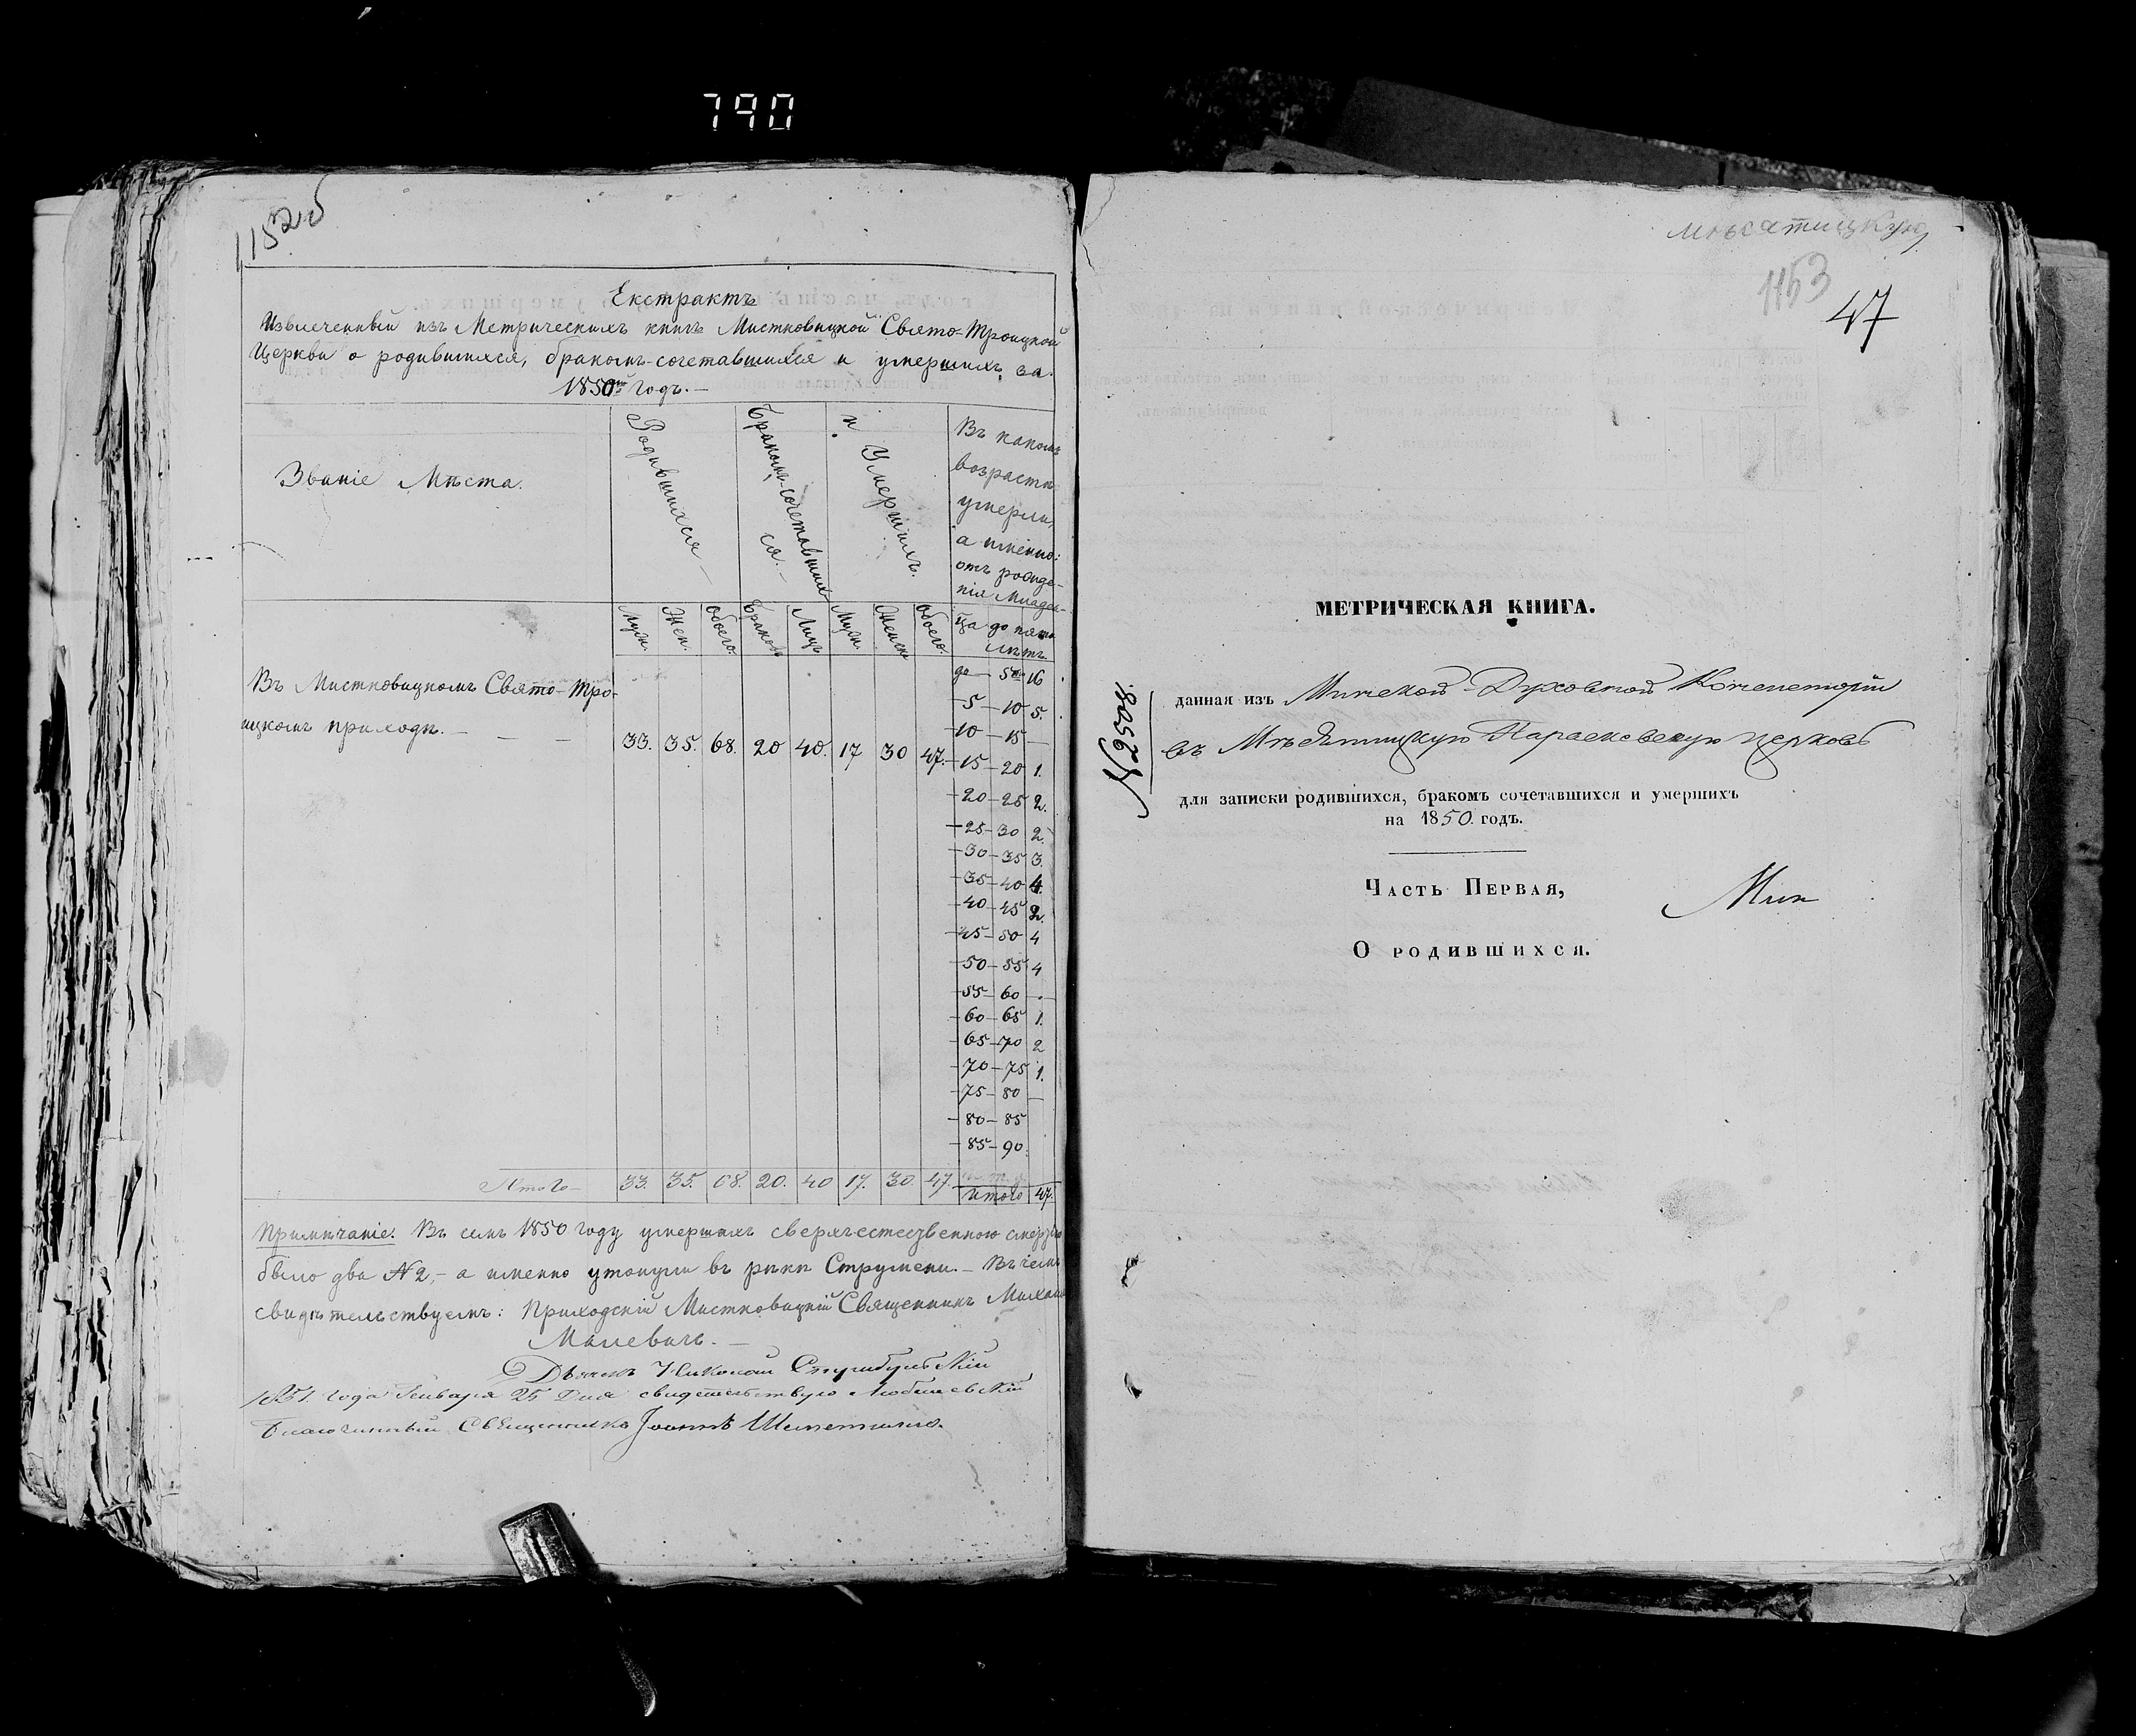 790
1152об
Екстрактъ
Извлеченный изъ Метрическихъ книгъ Мистковицкой Свято-Троицкой
Церкви о родившихся, бракомъ-сочетавшихся и умершихъ за
1850й годъ.–
Званіе Мѣста.
Родившихся
Бракомъ-сочетавшихся.–
и Умершихъ.
Въ какомъ
возрастѣ
умерли,
а именно:
отъ рожде-
нія Младен-
ца до пяти
лѣтъ.
Муж. Жен. Обоего. Браковъ Лицъ Муж. Женск. Обоего.
до – 5 16
Въ Мистковицкомъ Свято-Тро-
ицкомъ приходѣ. – – – 33. 35. 68. 20 40. 17 30 47.
5 – 10 5.
10 – 15 –
15 – 20 1.
20 – 25 2.
25 – 30 2.
30 – 35 3.
35 – 40 4.
40 – 45 2.
45 – 50 4
50 – 55 4
55 – 60 –
60 – 65 1.
65 – 70 2
70 – 75 1.
75 – 80 –
80 – 85
85 – 90.
Итого – 33. 35. 68. 20. 40 17. 30. 47.
Итого 47.
Примѣчаніе. Въ семъ 1850 году умершихъ сверхъестественною смертію
было два № 2,– а именно утонули въ рѣкѣ Струмени.– Въ чемъ
свидѣтельствуемъ: Приходскій Мистковицкій Священникъ Михаилъ
Малевичъ. –
Дьячекъ Николай
1851 года Генваря 25 Дня свидетельствую Любашевскій
Благочинный Священникъ Іоаннъ
мѣсятицкую
1153
47
МЕТРИЧЕСКАЯ КНИГА.
№ 2508.
данная изъ Минской Духовной Консисторіи
въ Мѣсятицкую Параскевскую церковь
для записки родившихся, бракомъ сочетавшихся и умершихъ
на 1850. годъ.
Часть Первая,
Мин
О родившихся.